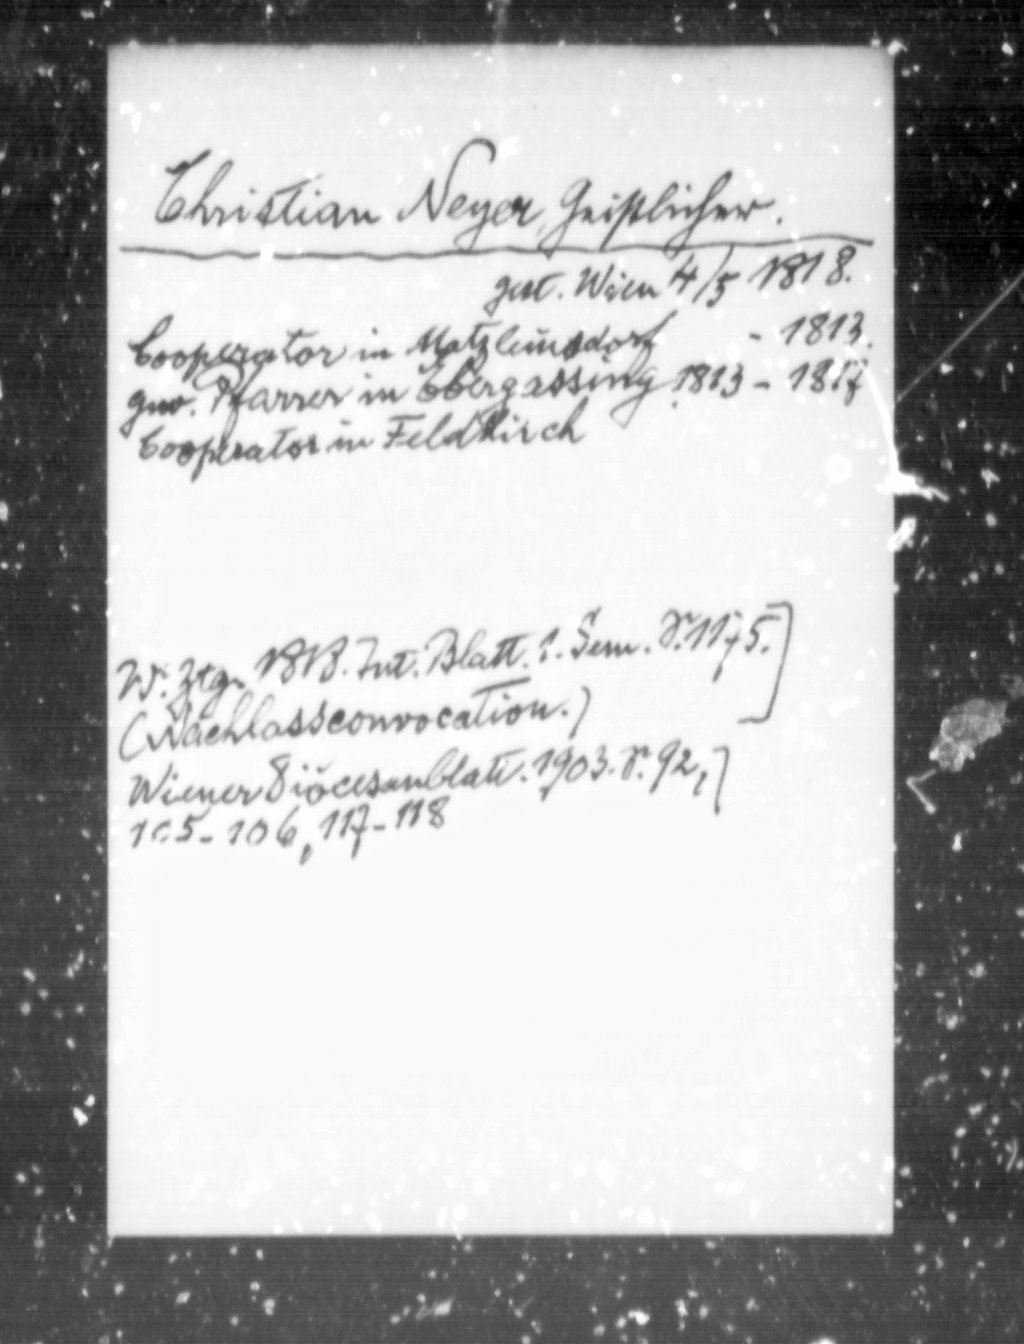 Christian Neyer, Geistlicher.
gest. Wien 4/5 1818.
Cooperator in Matzleinsdorf - 1813.
gew. Pfarrer in Ebergassing 1813 - 1817
Cooperator in Feldkirch
W. Ztg. 1818. Int. Blatt. I. Sem. S. 1175.]
(Nachlassconvocation.)
Wiener Diöcesanblatt. 1903. S. 92,]
105-106, 117-118